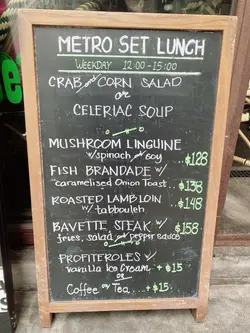 METRO SET LUNCH
WEEKDAY 12:00-15:00
CRAB and CORN SALAD
or
CELERIAC SOUP
MUSHROOM LINGUINE
w/spinach and soy ..$128
FISH BRANDADE w/
caramelised Onion Toast...$138
ROASTED LAMB LOIN w/
tabbouleh ..$148
BAVETTE STEAK w/
fries, salad and pepper sauce $158
PROFITEROLES w/
Vanilla Ice Cream + $15
OR
Coffee or Tea...+$15